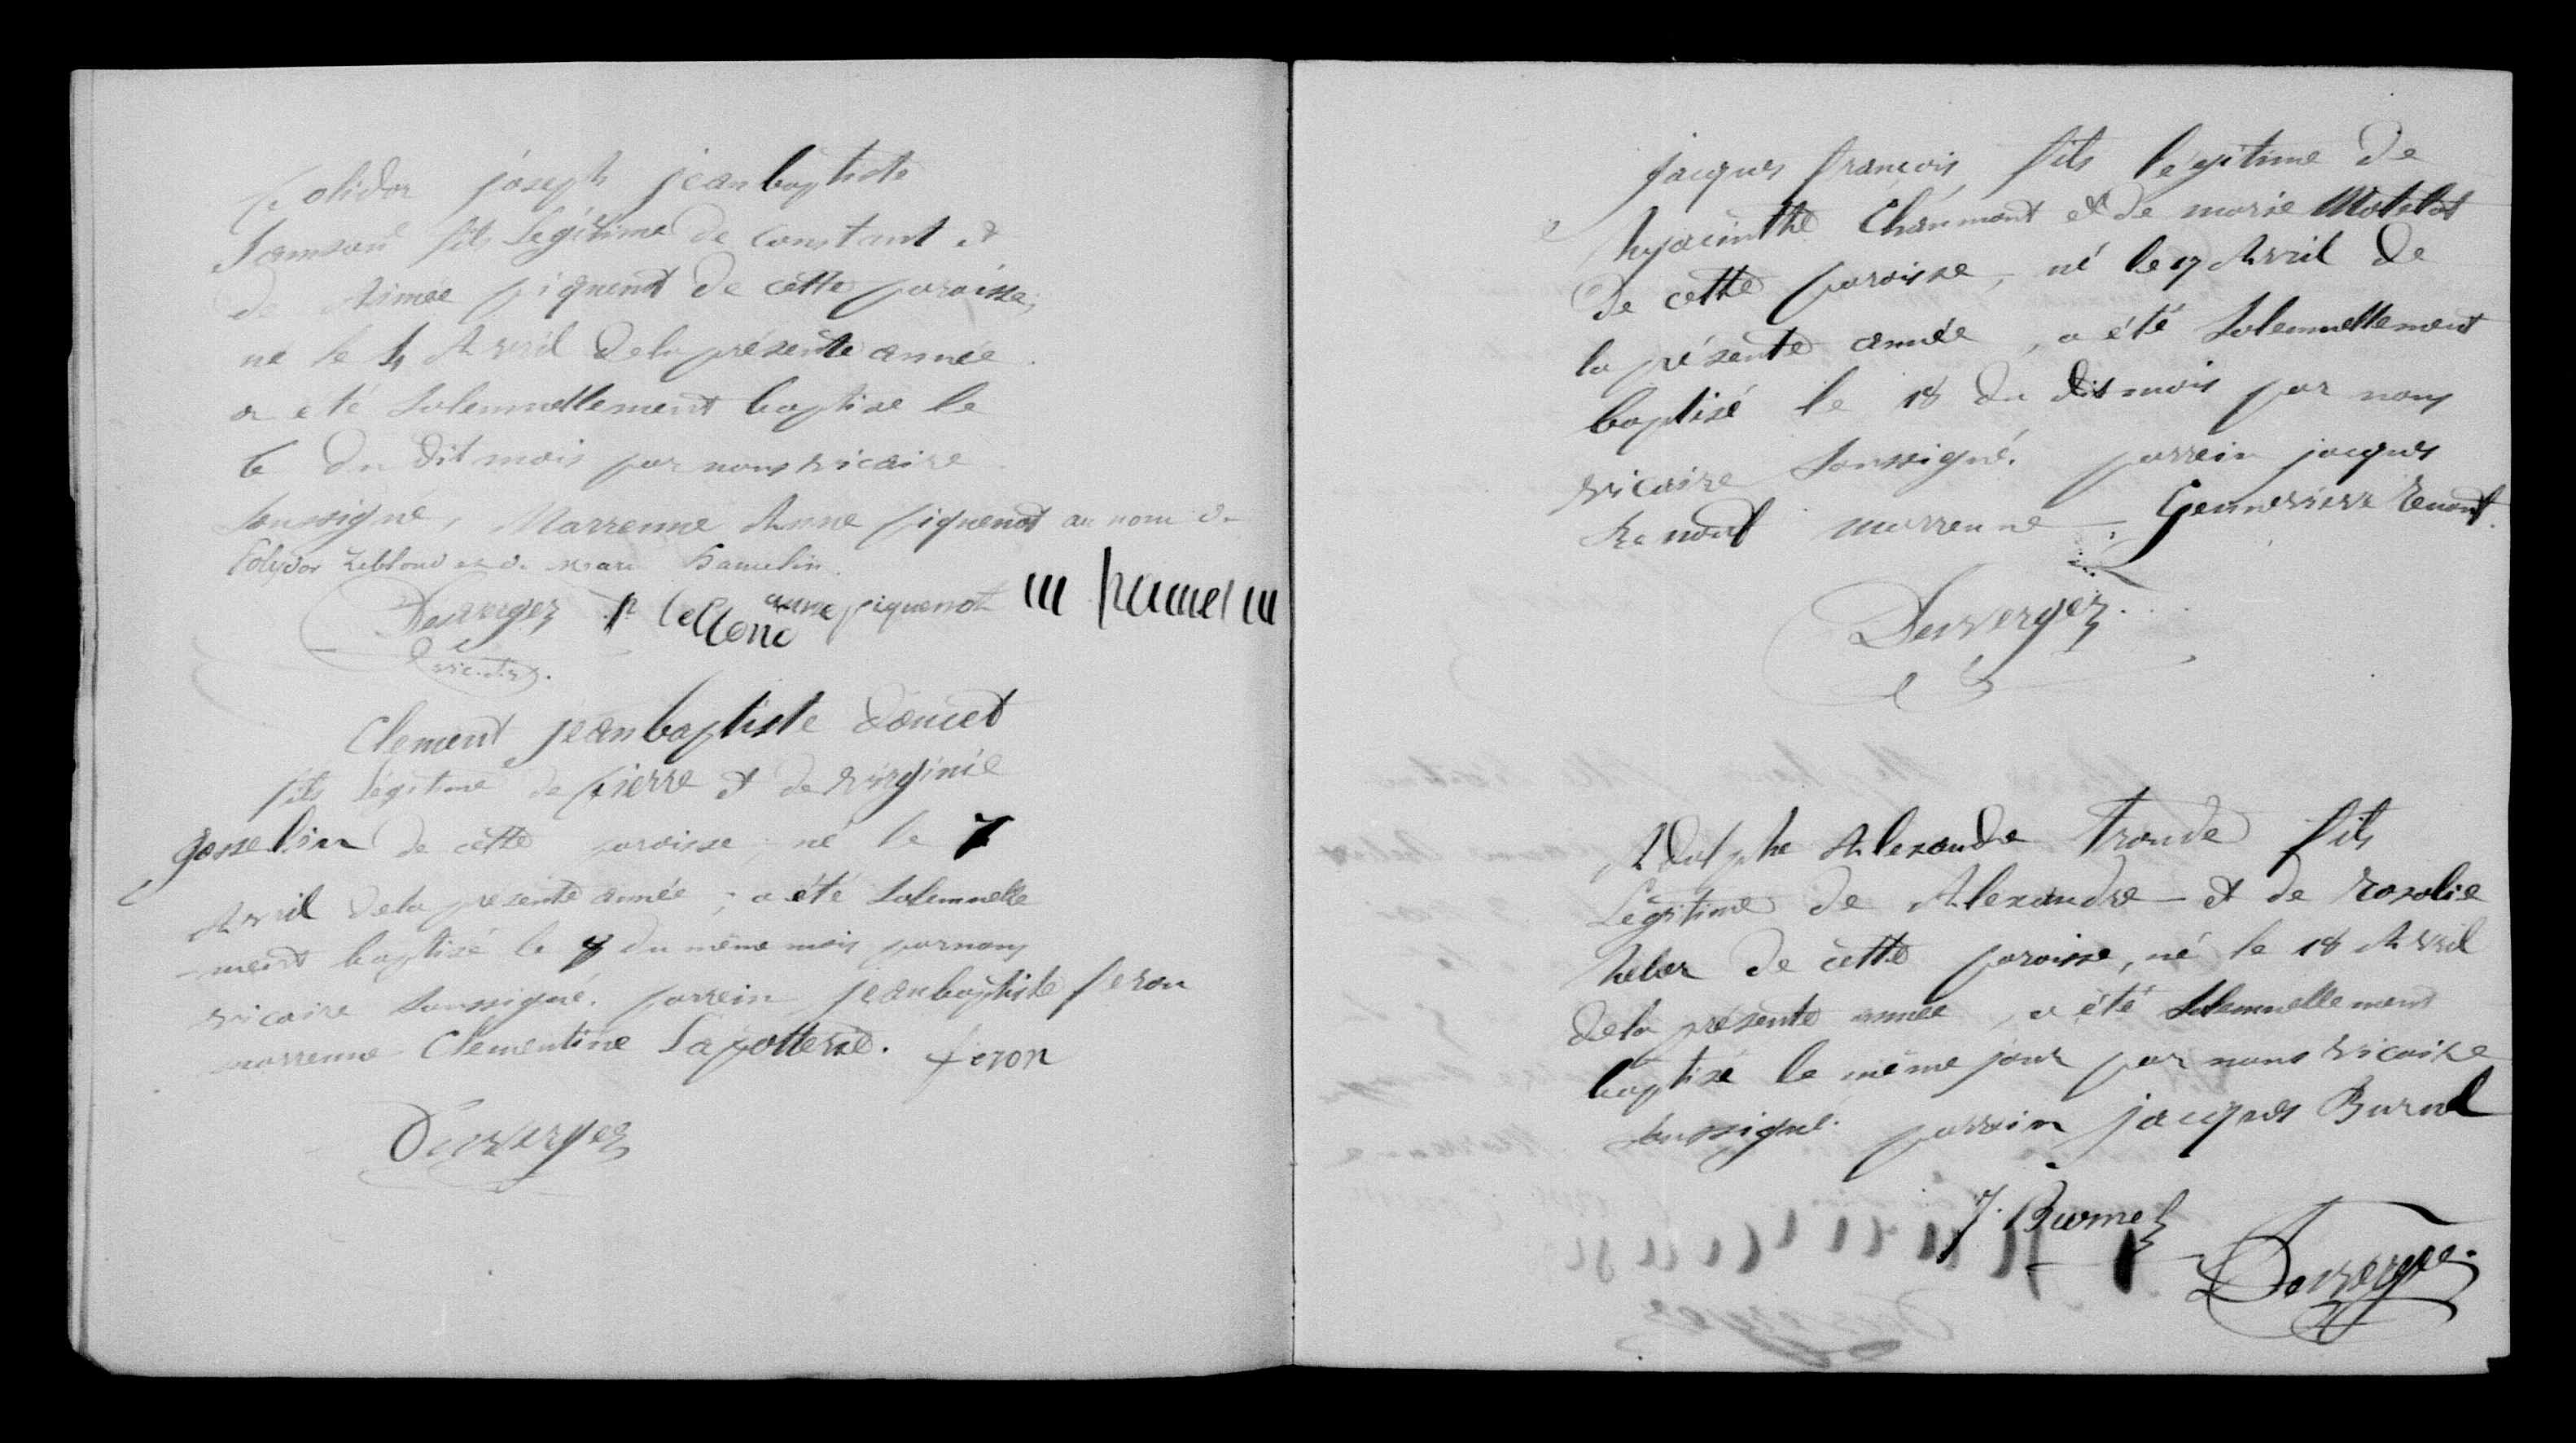 Polidor joseph jean baptiste
Samson fils légitime de Constant et
de Aimée piquenot de cette paroisse,
né le 4 Avril dela présente année
a été Solennellement baptisé le
6 du dit mois par nous vicaire
Soussigné, Marrenne Anne piquenot au nom de
Polydor Leblond et de Hamelin
Duverger p leblond anne piquenot m hamelin
vicaire.
Clement jean baptiste Doucet
fils légitime de pierre et de virginie
gosselin de cette paroisse, né le 7
Avril dela présente année ; a été Solennelle
-ment baptisé le du même mois par nous
vicaire Soussigné. parrein jean baptiste feron
marrenne Clementine Lapotterie. feron
Duverger
jacques françois, fils légitime de
hyacinthe Chaumont et de marie Matelot
De cette paroisse, né le 17 Avril de
la présente année, a été Solennellement
baptisé le 18 du dit mois par nous
vicaire Soussigné. parrein jacques
Renout marrenne : Gennevieve Renout.
Duverger
Adolphe Alexandre Troude fils
Légitime de Alexandre et de Rosalie
de cette paroisse, né le 18 Avril
dela présente année, a été Solennellement
baptisé le même jour par nous vicaire
Soussigné. parrein jacques Burnel
J. Burnel
Duverger